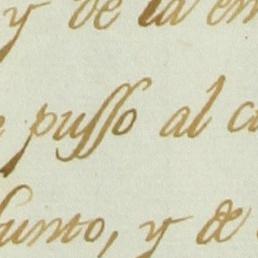 y de la en
e pusso al c
sunto, y de